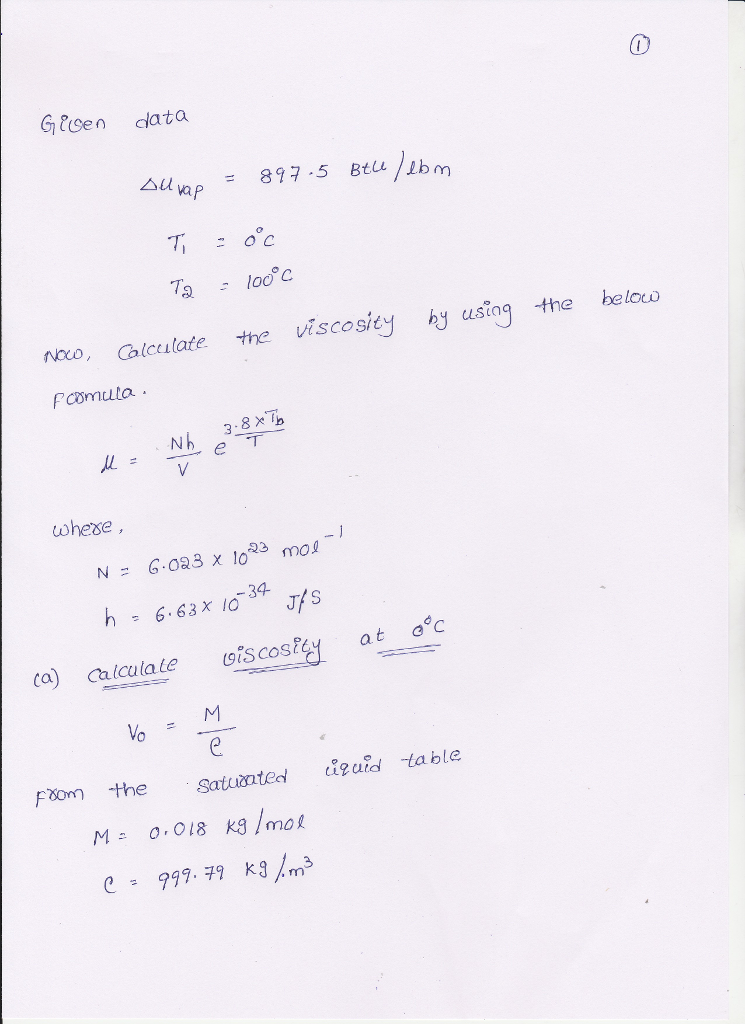 ①
Given data
ΔU vap = 897.5 Btu/lbm
T₁ = 0°C
T₂ = 100°C
Now, Calculate the viscosity by using the below
Formula.
μ = Nh/V e^(3.8×Tb/T)
where,
N = 6.023 × 10²³ mol⁻¹
h = 6.63 × 10⁻³⁴ J/S
(a) Calculate viscosity at 0°C
V₀ = M/ρ
From the saturated liquid table
M = 0.018 kg/mol
ρ = 999.79 kg/m³